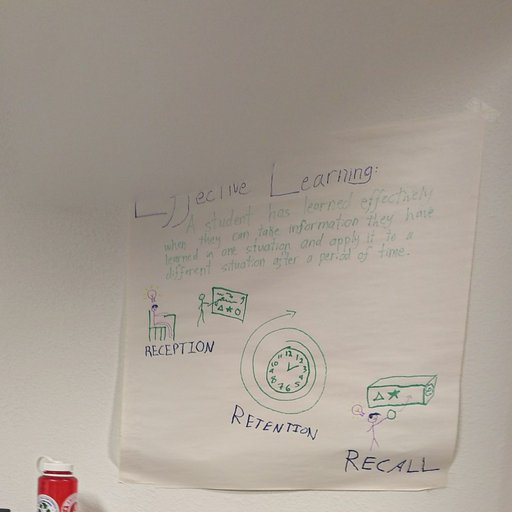 Effective Learning:
A student has learned effectively
when they can take information they have
learned in one situation and apply it to a
different situation after a period of time.
RECEPTION
12
1
2
3
4
5
6
7
8
9
10
11
RETENTION
RECALL